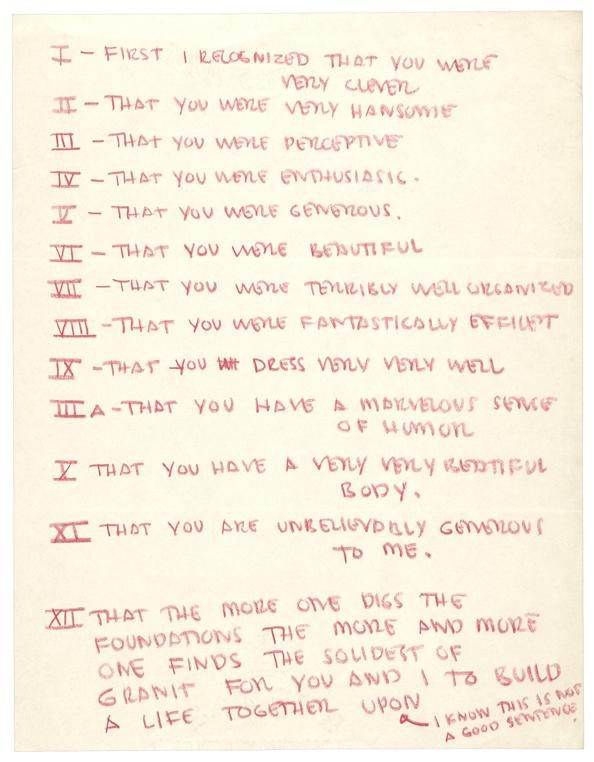 I – FIRST I RECOGNIZED THAT YOU WERE
VERY CLEVER
II – THAT YOU WERE VERY HANSOME
III – THAT YOU WERE PERCEPTIVE
IV – THAT YOU WERE ENTHUSIASIC.
V – THAT YOU WERE GENEROUS.
VI – THAT YOU WERE BEAUTIFUL
VII – THAT YOU WERE TERRIBLY WELL ORGANIZED
VIII – THAT YOU WERE FANTASTICALLY EFFICET
IX – THAT YOU DRESS VERY VERY WELL
III A – THAT YOU HAVE A MARVELOUS SENSE
OF HUMOR
X THAT YOU HAVE A VERY VERY BEATIFUL
BODY.
XI THAT YOU ARE UNBELIEVABLY GENEROUS
TO ME.
XII THAT THE MORE ONE DIGS THE
FOUNDATIONS THE MORE AND MORE
ONE FINDS THE SOLIDEST OF
GRANIT FOR YOU AND I TO BUILD
A LIFE TOGETHER UPON
I KNOW THIS IS NOT
A GOOD SENTENCE.